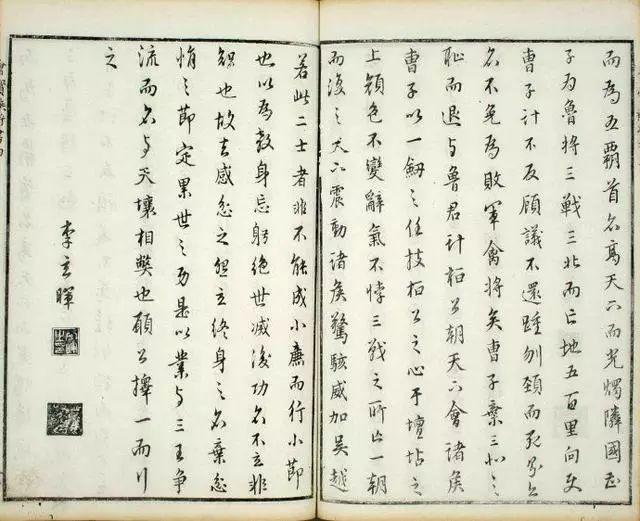 而為五霸首名高天下而光燭隣國曹
子為魯將三戰三北而亡地五百里向使
曹子計不反顧議不還踵刎頸而死則亦
名不免為敗軍禽將矣曹子棄三北之
恥而退与魯君計桓公朝天下會諸侯
曹子以一劒之任枝桓公之心於壇坫之
上顏色不變辭氣不悖三戰之所亡一朝
而復之天下震動諸侯驚駭威加吳越
若此二士者非不能成小廉而行小節
也以為殺身忘躬絕世滅後功名不立非
智也故去感忿之怨立終身之名棄忿
悁之節定累世之功是以業与三王爭
流而名与天壤相獘也願公擇一而行
之
李玄暉